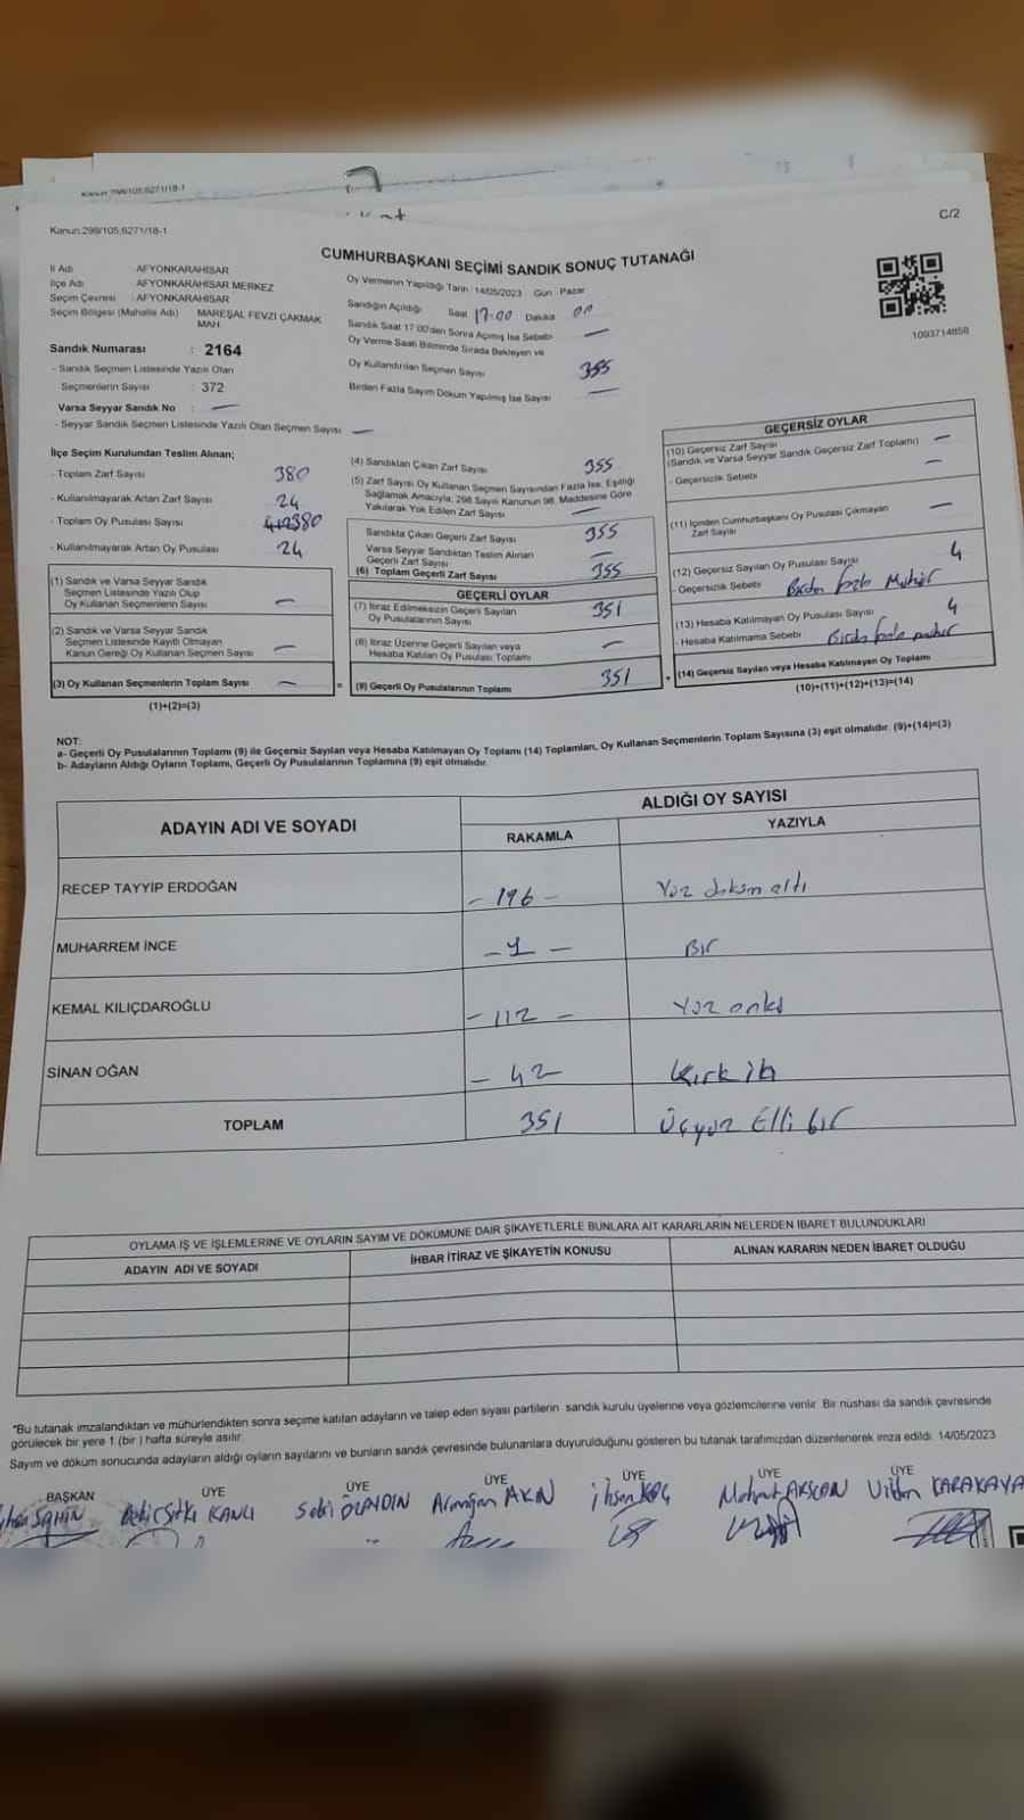 Kanun:299/105,6271/18-1
C/2
CUMHURBAŞKANI SEÇİMİ SANDIK SONUÇ TUTANAĞI
İl Adı AFYONKARAHİSAR
İlçe Adı AFYONKARAHİSAR MERKEZ
Seçim Çevresi : AFYONKARAHİSAR
Seçim Bölgesi (Mahalle Adı) MAREŞAL FEVZİ ÇAKMAK
MAH.
Sandık Numarası : 2164
- Sandık Seçmen Listesinde Yazılı Olan
Seçmenlerin Sayısı : 372
Varsa Seyyar Sandık No : —
- Seyyar Sandık Seçmen Listesinde Yazılı Olan Seçmen Sayısı —
Oy Vermenin Yapıldığı Tarih : 14/05/2023 Gün : Pazar
Sandığın Açıldığı Saat 17:00 Dakika 00
Sandık Saat 17:00'den Sonra Açılmış İse Sebebi —
Oy Verme Saati Bitiminde Sırada Bekleyen ve
Oy Kullandırılan Seçmen Sayısı 355
Birden Fazla Sayım Döküm Yapılmış İse Sayısı —
1093714858
İlçe Seçim Kurulundan Teslim Alınan;
- Toplam Zarf Sayısı 380
- Kullanılmayarak Artan Zarf Sayısı 24
- Toplam Oy Pusulası Sayısı 380
- Kullanılmayarak Artan Oy Pusulası 24
(1) Sandık ve Varsa Seyyar Sandık
Seçmen Listesinde Yazılı Olup
Oy Kullanan Seçmenlerin Sayısı —
(2) Sandık ve Varsa Seyyar Sandık
Seçmen Listesinde Kayıtlı Olmayan
Kanun Gereği Oy Kullanan Seçmen Sayısı —
(3) Oy Kullanan Seçmenlerin Toplam Sayısı —
(1)+(2)=(3)
(4) Sandıktan Çıkan Zarf Sayısı 355
(5) Zarf Sayısı Oy Kullanan Seçmen Sayısından Fazla İse, Eşitliği
Sağlamak Amacıyla, 298 Sayılı Kanunun 98. Maddesine Göre
Yakılarak Yok Edilen Zarf Sayısı —
Sandıkta Çıkan Geçerli Zarf Sayısı 355
Varsa Seyyar Sandıktan Teslim Alınan
Geçerli Zarf Sayısı —
(6) Toplam Geçerli Zarf Sayısı 355
GEÇERLİ OYLAR
(7) İtiraz Edilmeksizin Geçerli Sayılan
Oy Pusulalarının Sayısı 351
(8) İtiraz Üzerine Geçerli Sayılan veya
Hesaba Katılan Oy Pusulası Toplamı —
= (9) Geçerli Oy Pusulalarının Toplamı 351
GEÇERSİZ OYLAR
(10) Geçersiz Zarf Sayısı
(Sandık ve Varsa Seyyar Sandık Geçersiz Zarf Toplamı) —
- Geçersizlik Sebebi —
(11) İçinden Cumhurbaşkanı Oy Pusulası Çıkmayan
Zarf Sayısı —
(12) Geçersiz Sayılan Oy Pusulası Sayısı 4
- Geçersizlik Sebebi Birden fazla Mühür
(13) Hesaba Katılmayan Oy Pusulası Sayısı 4
- Hesaba Katılmama Sebebi Birden fazla mühür
+ (14) Geçersiz Sayılan veya Hesaba Katılmayan Oy Toplamı
(10)+(11)+(12)+(13)=(14)
NOT:
a- Geçerli Oy Pusulalarının Toplamı (9) ile Geçersiz Sayılan veya Hesaba Katılmayan Oy Toplamı (14) Toplamları, Oy Kullanan Seçmenlerin Toplam Sayısına (3) eşit olmalıdır. (9)+(14)=(3)
b- Adayların Aldığı Oyların Toplamı, Geçerli Oy Pusulalarının Toplamına (9) eşit olmalıdır.
ADAYIN ADI VE SOYADI ALDIĞI OY SAYISI
RAKAMLA YAZIYLA
RECEP TAYYİP ERDOĞAN - 196 - Yüz doksan altı
MUHARREM İNCE - 1 - Bir
KEMAL KILIÇDAROĞLU - 112 - Yüz oniki
SİNAN OĞAN - 42 Kırk iki
TOPLAM 351 Üçyüz Elli bir
OYLAMA İŞ VE İŞLEMLERİNE VE OYLARIN SAYIM VE DÖKÜMÜNE DAİR ŞİKAYETLERLE BUNLARA AİT KARARLARIN NELERDEN İBARET BULUNDUKLARI
ADAYIN ADI VE SOYADI İHBAR İTİRAZ VE ŞİKAYETİN KONUSU ALINAN KARARIN NEDEN İBARET OLDUĞU
*Bu tutanak imzalandıktan ve mühürlendikten sonra seçime katılan adayların ve talep eden siyasi partilerin sandık kurulu üyelerine veya gözlemcilerine verilir. Bir nüshası da sandık çevresinde
görülecek bir yere 1 (bir ) hafta süreyle asılır.
Sayım ve döküm sonucunda adayların aldığı oyların sayılarını ve bunların sandık çevresinde bulunanlara duyurulduğunu gösteren bu tutanak tarafımızdan düzenlenerek imza edildi. 14/05/2023
BAŞKAN ÜYE ÜYE ÜYE ÜYE ÜYE ÜYE
ŞAHİN KANLI AKIN İhsan KOÇ Mehmet ARSLAN KARAKAYA